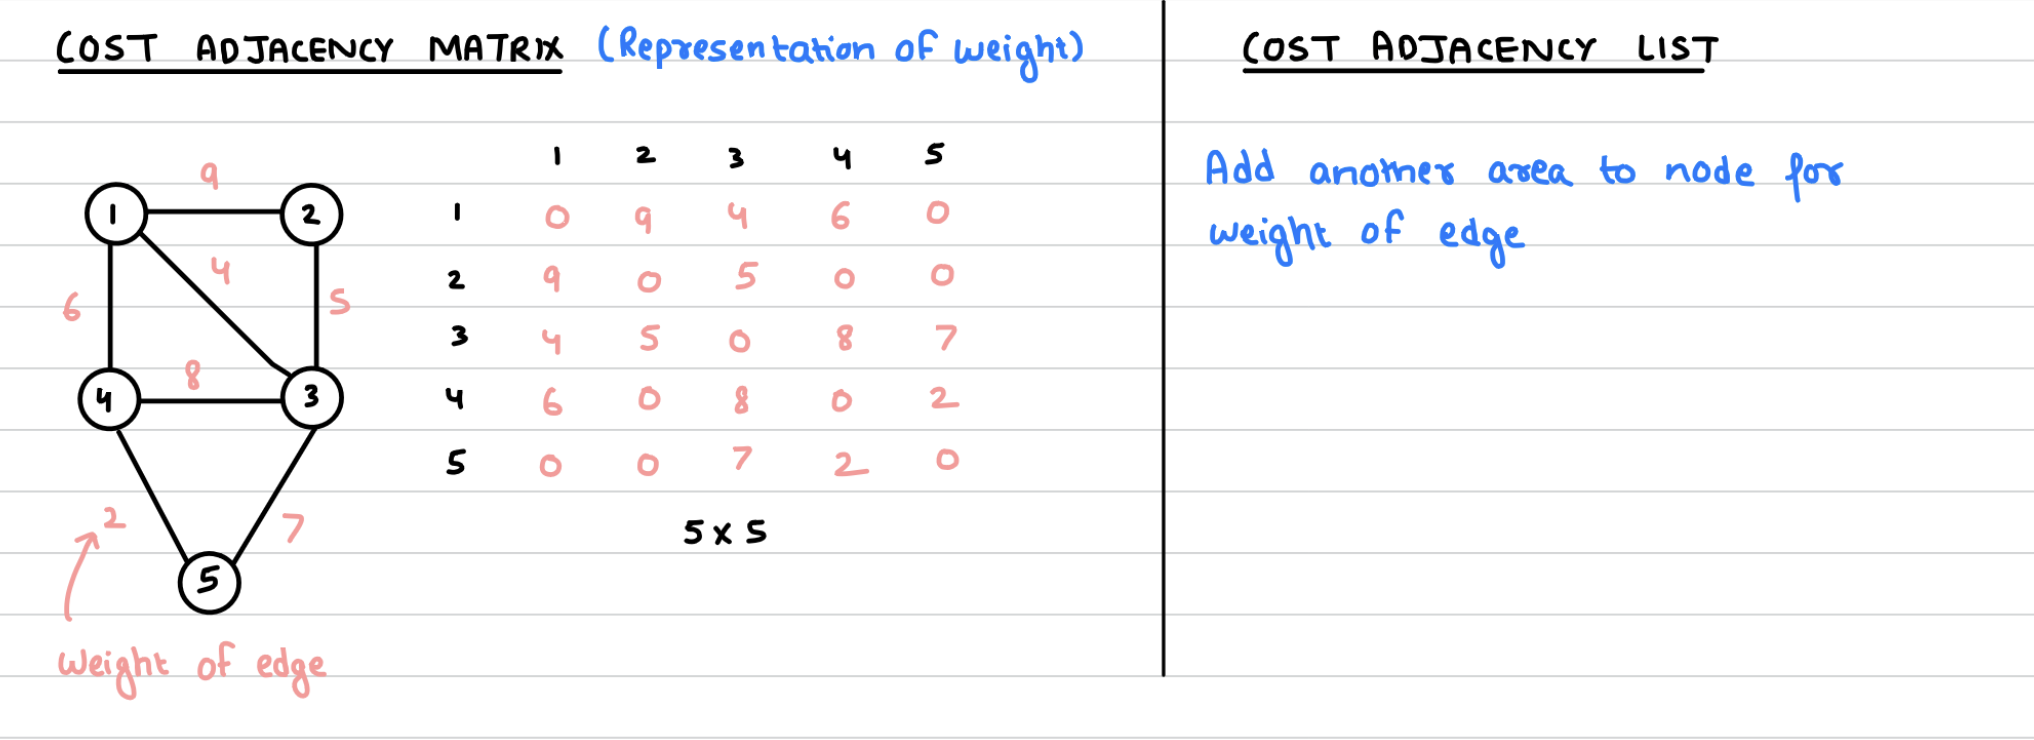 COST ADJACENCY MATRIX (Representation of weight)
9
1 2
4
6 5
8
4 3
2 7
5
weight of edge
1 2 3 4 5
1 0 9 4 6 0
2 9 0 5 0 0
3 4 5 0 8 7
4 6 0 8 0 2
5 0 0 7 2 0
5 x 5
COST ADJACENCY LIST
Add another area to node for
weight of edge